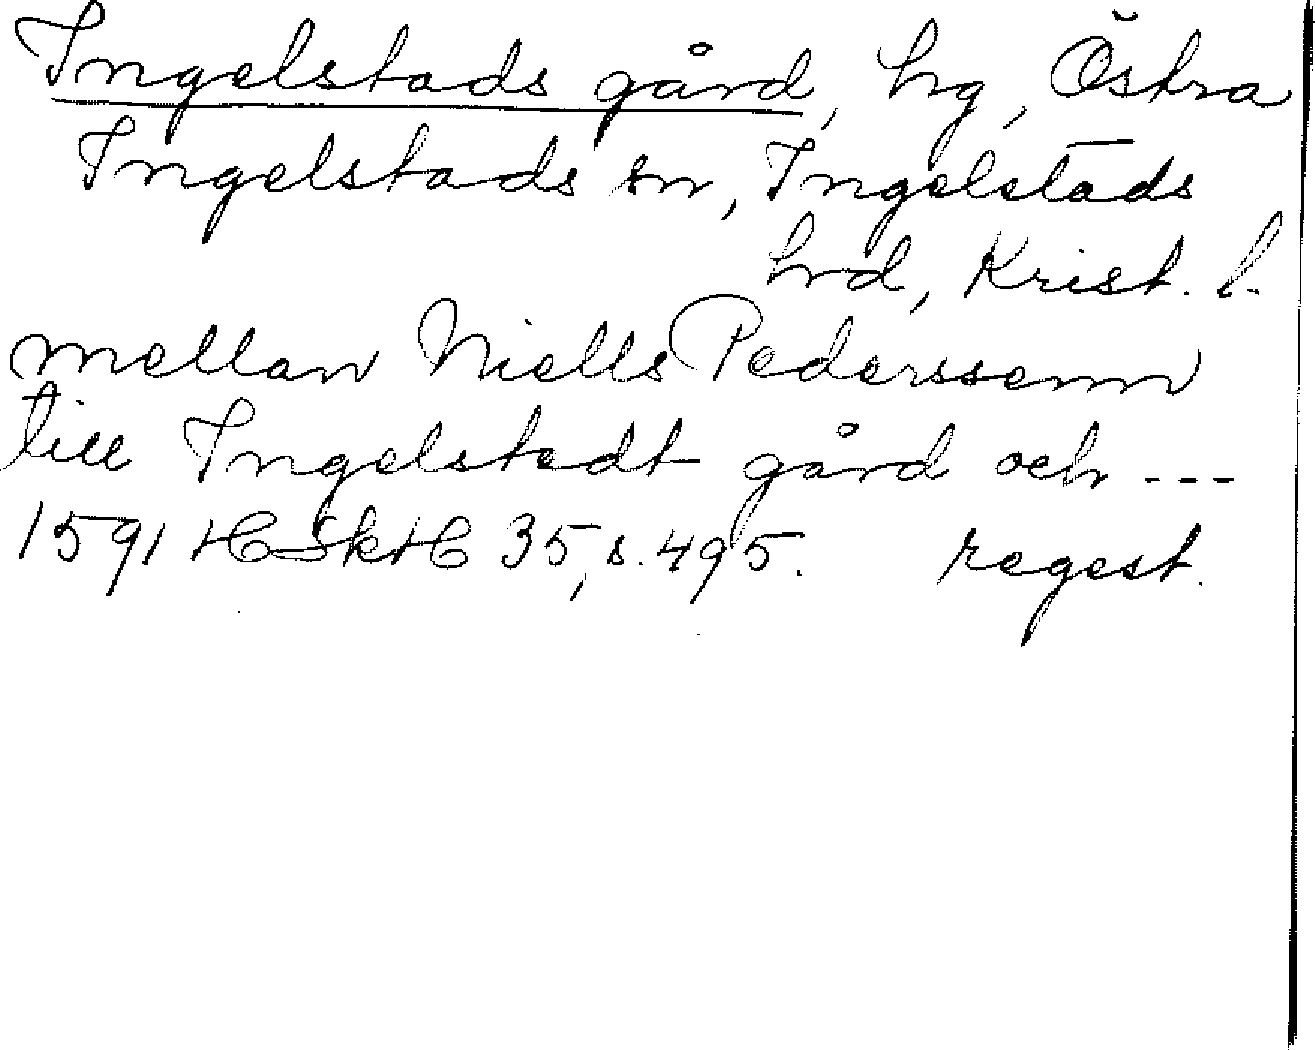 Ingelstads gård, hg, Östra
Ingelstads sn, Ingelstads
hrd, Krist. l.
mellan Niells Pederssenn
till Ingelstedt gård och ---
1591 HSkH 35, s. 495. regest.